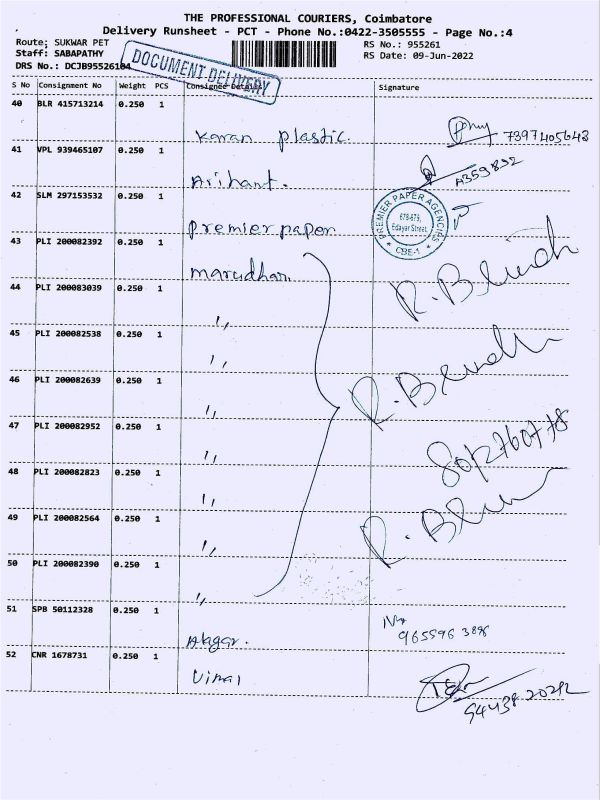 THE PROFESSIONAL COURIERS, Coimbatore
Delivery Runsheet - PCT - Phone No.:0422-3505555 - Page No.:4
Route; SUKWAR PET
RS No.: 955261
Staff: SABAPATHY
RS Date: 09-Jun-2022
DRS No.: DCJB95526104
DOCUMENT DELIVERY
S No Consignment No Weight PCS Consignee Details Signature
40 BLR 415713214 0.250 1
Karan plastic. 7397405643
41 VPL 939465107 0.250 1
Arihant. A359832
42 SLM 297153532 0.250 1
Premier paper
PREMIER PAPER AGENCIES
678-679,
Edayar Street,
* CBE-1 *
43 PLI 200082392 0.250 1
marudhar
44 PLI 200083039 0.250 1
",
45 PLI 200082538 0.250 1
",
46 PLI 200082639 0.250 1
",
47 PLI 200082952 0.250 1
",
48 PLI 200082823 0.250 1
",
49 PLI 200082564 0.250 1
",
50 PLI 200082390 0.250 1
",
51 SPB 50112328 0.250 1
52 CNR 1678731 0.250 1